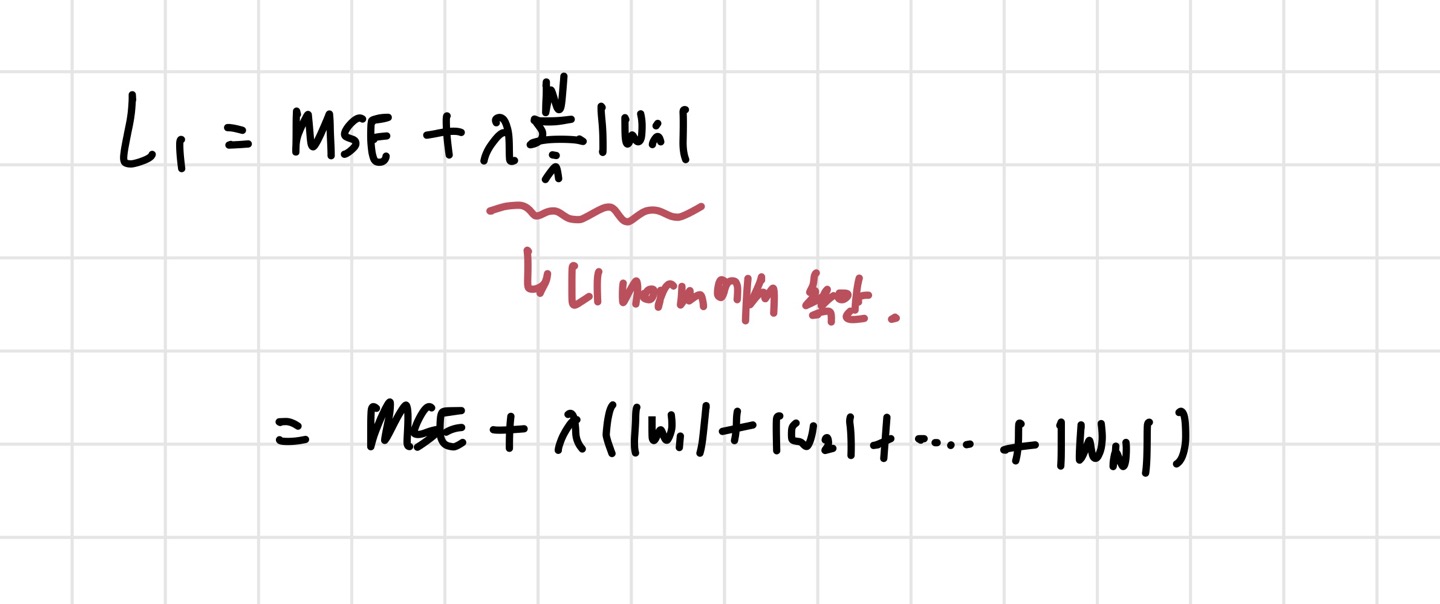 L₁ = MSE + λ∑ᵢᴺ|wᵢ|
↳ L1 norm에서 확장.
= MSE + λ(|w₁| + |w₂| + ···· + |w_N|)